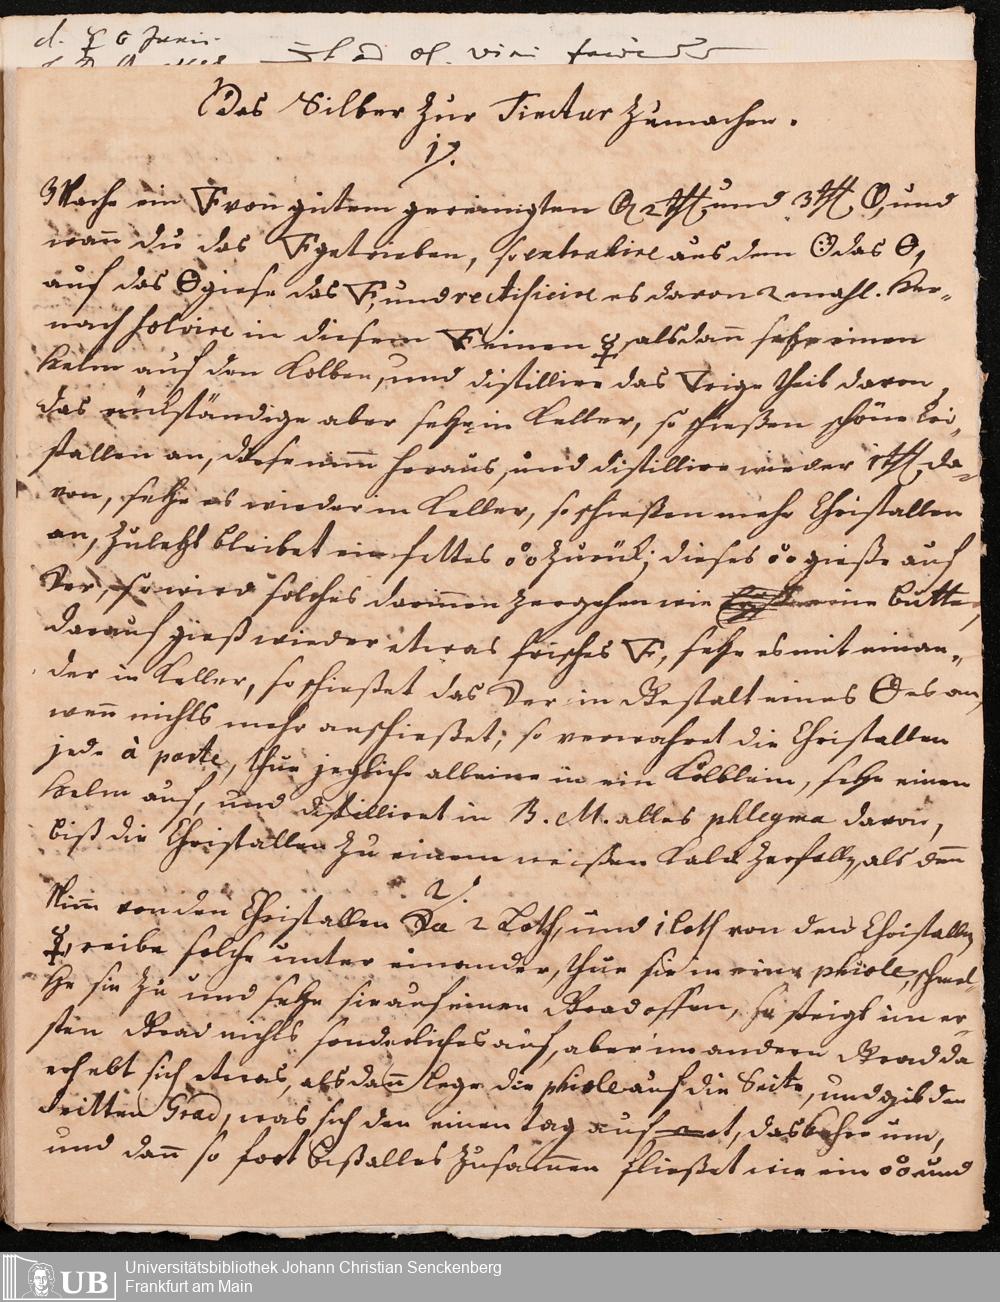 d. ☿ 6 Junii.
ol. vini
Das Silber zur Tinctur zumachen.
1).
Mache ein 🜅 von gutem gereinigten 🜕 2 ℔, und 3 ℔ 🜖, und
wann du das 🜅 getrieben, so extrahire aus dem das 🜔,
auf das 🜔 giese das 🜅, und rectificire es davon 2 mahl. Her-
nach solvire in diesem 🜅 einen ☿, alsdann setze einen
Helm auf den Kolben, und distillire das 🜄rige theil davon,
das rückständige aber setze in Keller, so schießen schöne Cri-
stallen an, diese nimm heraus, und distillire wieder 1 ℔, da-
von, setze es wieder in Keller, so schießen mehr Christallen
an, zuletzt bleibet ein fettes zurück; dieses gieße auf
so wird solches darinnen zergehen wie eine butter,
darauf gieß wieder etwas frisches 🜅, setze es mit einan-
der in Keller, so schießet das in Gestalt eines 🜔es an,
wenn nichts mehr anschießet; so verwahret die Christallen
jede à parte, thue jegliche alleine in ein Kölblein, setze einen
Helm auf, und distilliret in B. M. alles phlegma davon,
biß die Christallen zu einem weißen Kalck zerfallen, als denn
2).
Nimm von den Christallen 2 Loth, und 1 loth von den Christallen
☿, reibe solche unter einander, thue sie in eine phiole, schmel-
tze sie zu und setze sie auf einen Gradoffen, so steigt im er-
sten Grad nichts sonderliches auf, aber im andern Grad da
erhebt sich etwas, alsdann lege die phiole auf die Seite, und gib den
dritten Grad, was sich den einen tag auf, das kehre um,
und dann so fort biß alles zusammen fließet wie ein und
Universitätsbibliothek Johann Christian Senckenberg
UB
Frankfurt am Main